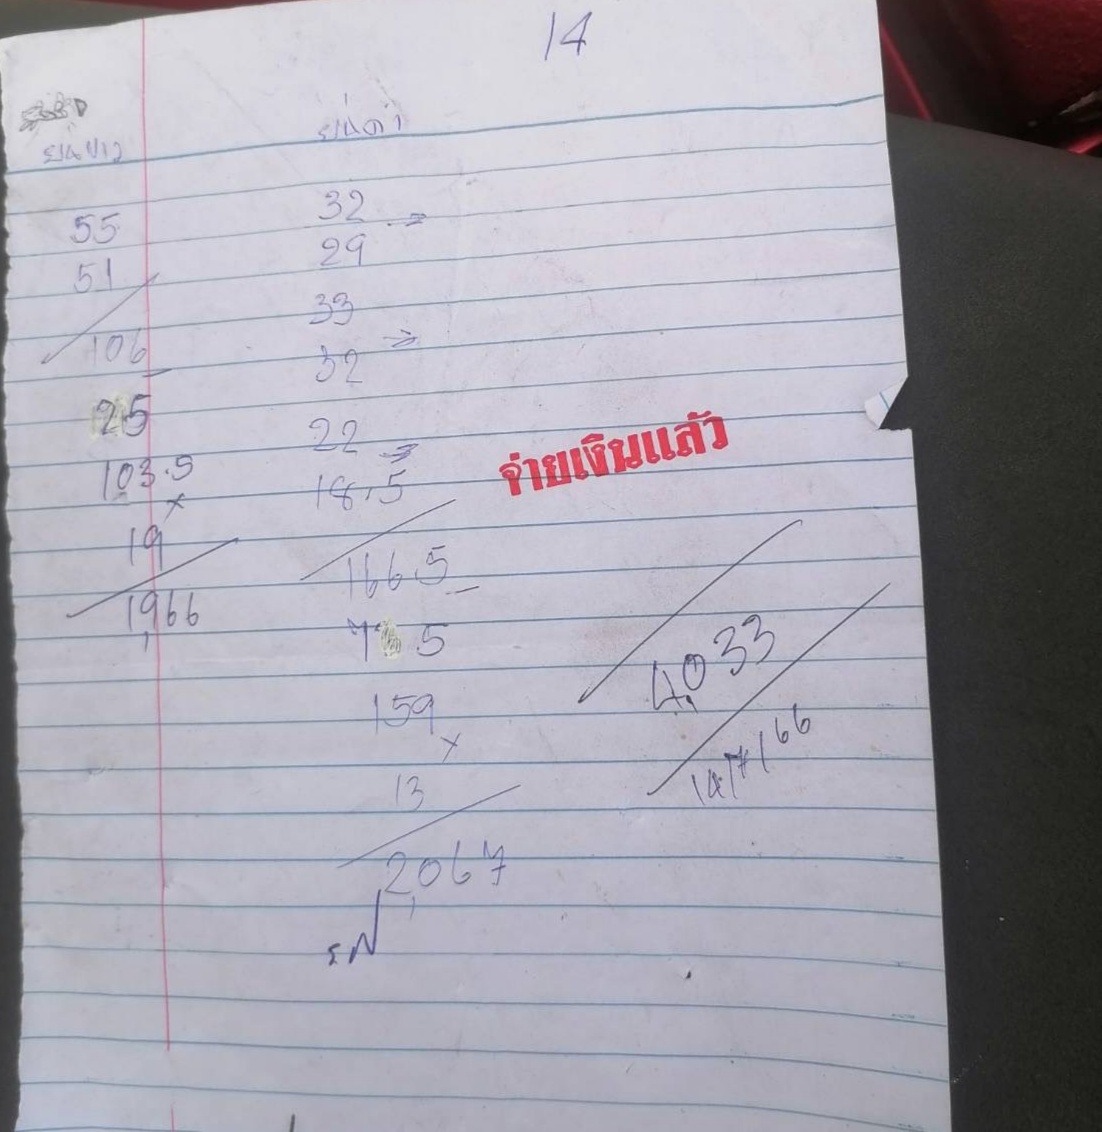 14
ยางขาว
ยางดำ
55
51
106
25
103.5
x
19
1,966
32
29
33
32
22
18.5
166.5
7.5
159
x
13
2,067
จ่ายเงินแล้ว
4,033
14/7/66